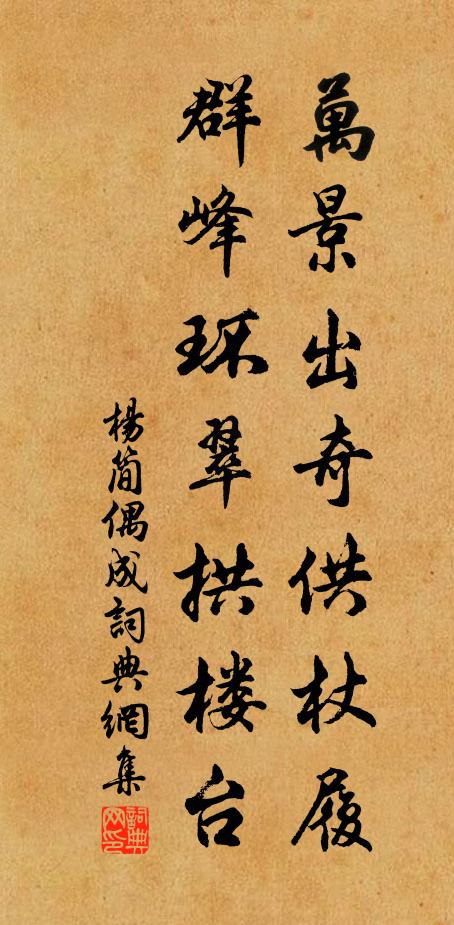 萬景出奇供杖履
群峰环翠拱楼台
楊简偶成詞典網集
詞典网印